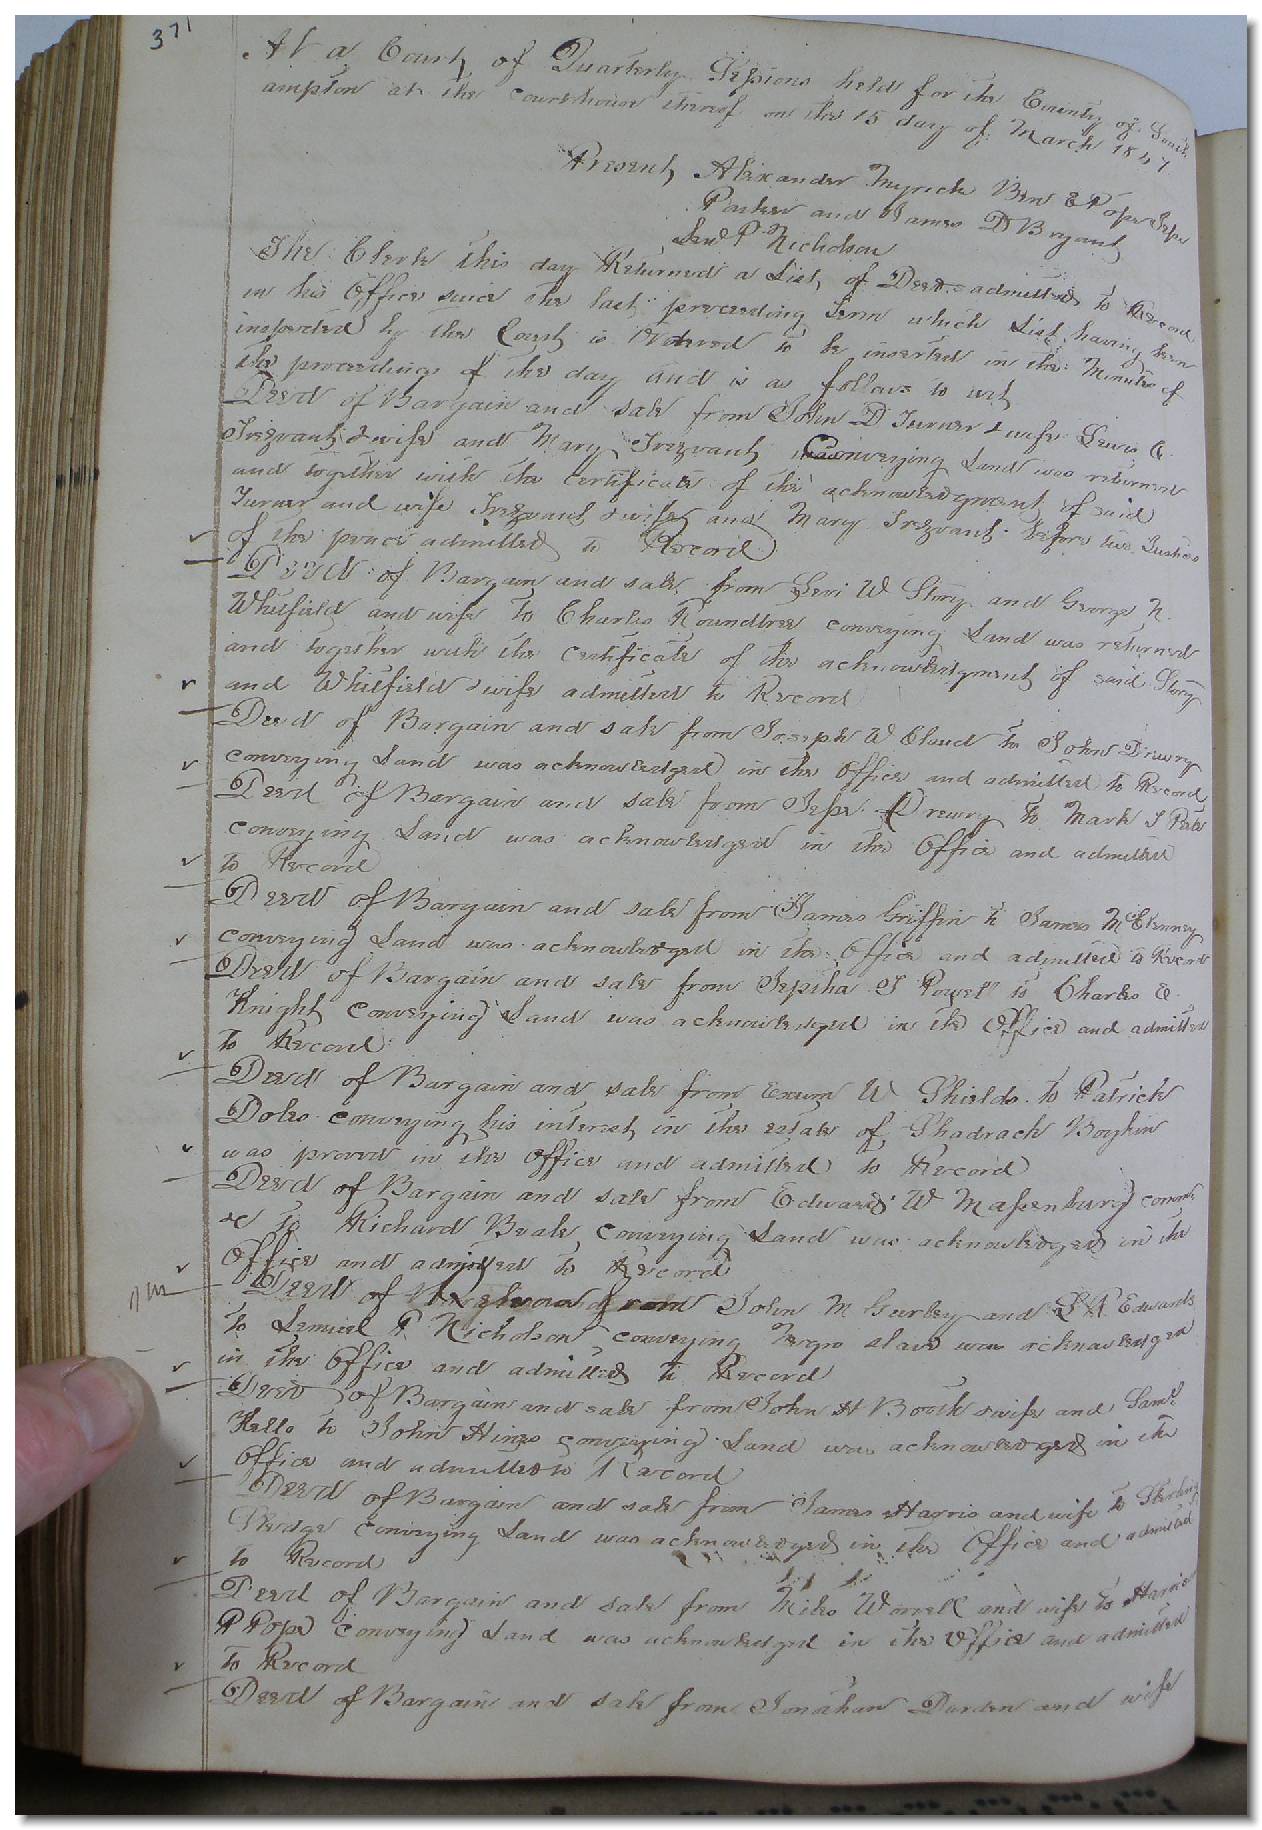 371
At a Court of Quarterly Sessions held for the County of South
ampton at the courthouse thereof on the 15 day of March 1847
Present, Alexander Myrick Ben E Pope Jesse
Parker and James D Bryant
Lem P Nicholson
The Clerk this day Returned a List of Deeds admitted to Record
in his Office since the last preceeding Term which List having been
inspected by the Court is Ordered to be inserted in the Minutes of
the proceedings of the day and is as follows to wit
Deed of Bargain and sale from John D Turner & wife Lewis C
Trezvant & wife and Mary Trezvant Conveying Land was returned
and together with the certificate of the acknowledgment of said
Turner and wife Trezvant & wife and Mary Trezvant before two Justices
of the peace admitted to Record
Deed of Bargain and sale from Levi W Story and George N.
Whitfield and wife to Charles Roundtree conveying Land was returned
and together with the certificate of the acknowledgment of said Story
and Whitfield & wife admitted to Record
Deed of Bargain and sale from Joseph W Claud to John Drewry
conveying Land was acknowledged in the Office and admitted to Record
Deed of Bargain and sale from Jesse Drewry to Mark J Pate
conveying Land was acknowledged in the Office and admitted
to Record
Deed of Bargain and sale from James Griffin to James McElenney
conveying Land was acknowledged in the Office and admitted to Record
Deed of Bargain and sale from Jeptha J Powell to Charles E
Knight Conveying Land was acknowledged in the Office and admitted
to Record
Deed of Bargain and sale from Exum W Shields to Patrick
Doles conveying his interest in the estate of Shadrach Boykin
was proved in the Office and admitted to Record
Deed of Bargain and sale from Edward W Massenburg comm
&c to Richard Beale conveying Land was acknowledged in the
Office and admitted to Record
Deed of from John M Gurley and Edwards
to Lemuel P Nicholson conveying Negro slave was acknowledged
in the Office and admitted to Record
Deed of Bargain and sale from John H Booth & wife and Saml
Kello to John Hines conveying Land was acknowledged in the
Office and admitted to Record
Deed of Bargain and sale from James Harris and wife to Sterling
Sledge conveying Land was acknowledged in the Office and admitted
to Record
Deed of Bargain and sale from Miles Worrell and wife to Harris
P Pope conveying Land was acknowledged in the Office and admitted
to Record
Deed of Bargain and sale from Jonathan Darden and wife